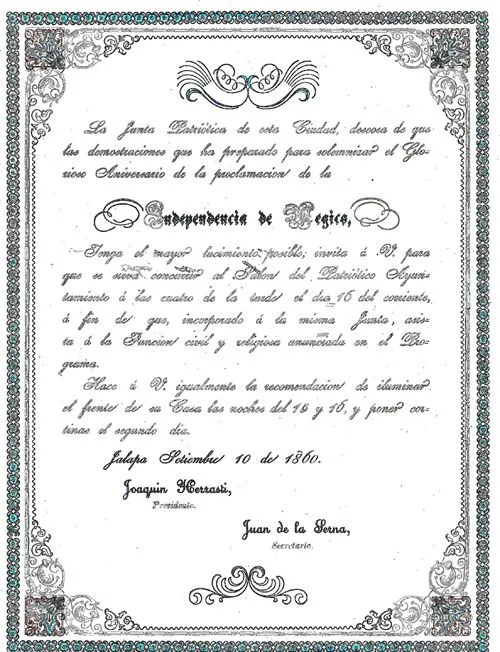 La Junta Patriótica de esta Ciudad, deseosa de que
las demostraciones que ha preparado para solemnizar el Glo-
rioso Aniversario de la proclamacion de la
Independencia de Megico,
Tenga el mayor lucimiento posible; invita á V. para
que se sirva concurrir al Salon del Patriótico Ayun-
tamiento á las cuatro de la tarde el dia 16 del corriente,
á fin de que, incorporado á la misma Junta, asis-
ta á la Funcion civil y religiosa anunciada en el Pro-
grama.
Hace á V. igualmente la recomendacion de iluminar
el frente de su Casa las noches del 15 y 16, y poner cor-
tinas el segundo dia.
Jalapa Setiembre 10 de 1860.
Joaquin Herrasti,
Presidente.
Juan de la Serna,
Secretario.